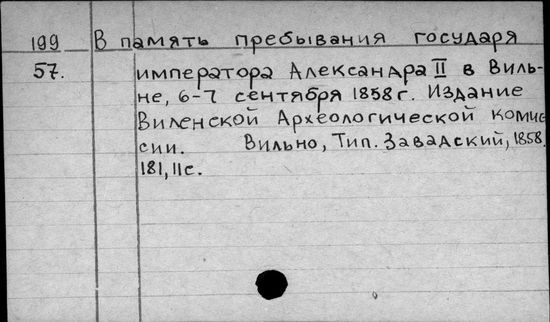 199 В память пребывания государя
57. императора Александра II в Виль-
не, 6-7 сентября 1858 г. Издание
Виленской Археологической комис
сии. Вильно, Тип. Завадский, 1858.
181, II с.